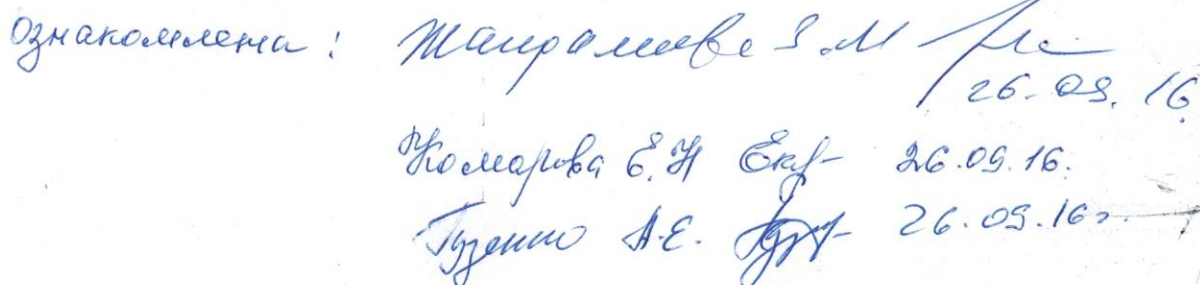 ознакомлена: З.М
26.09.16
Комарова Е.Н 26.09.16.
Гузенко А.Е. 26.09.16г.